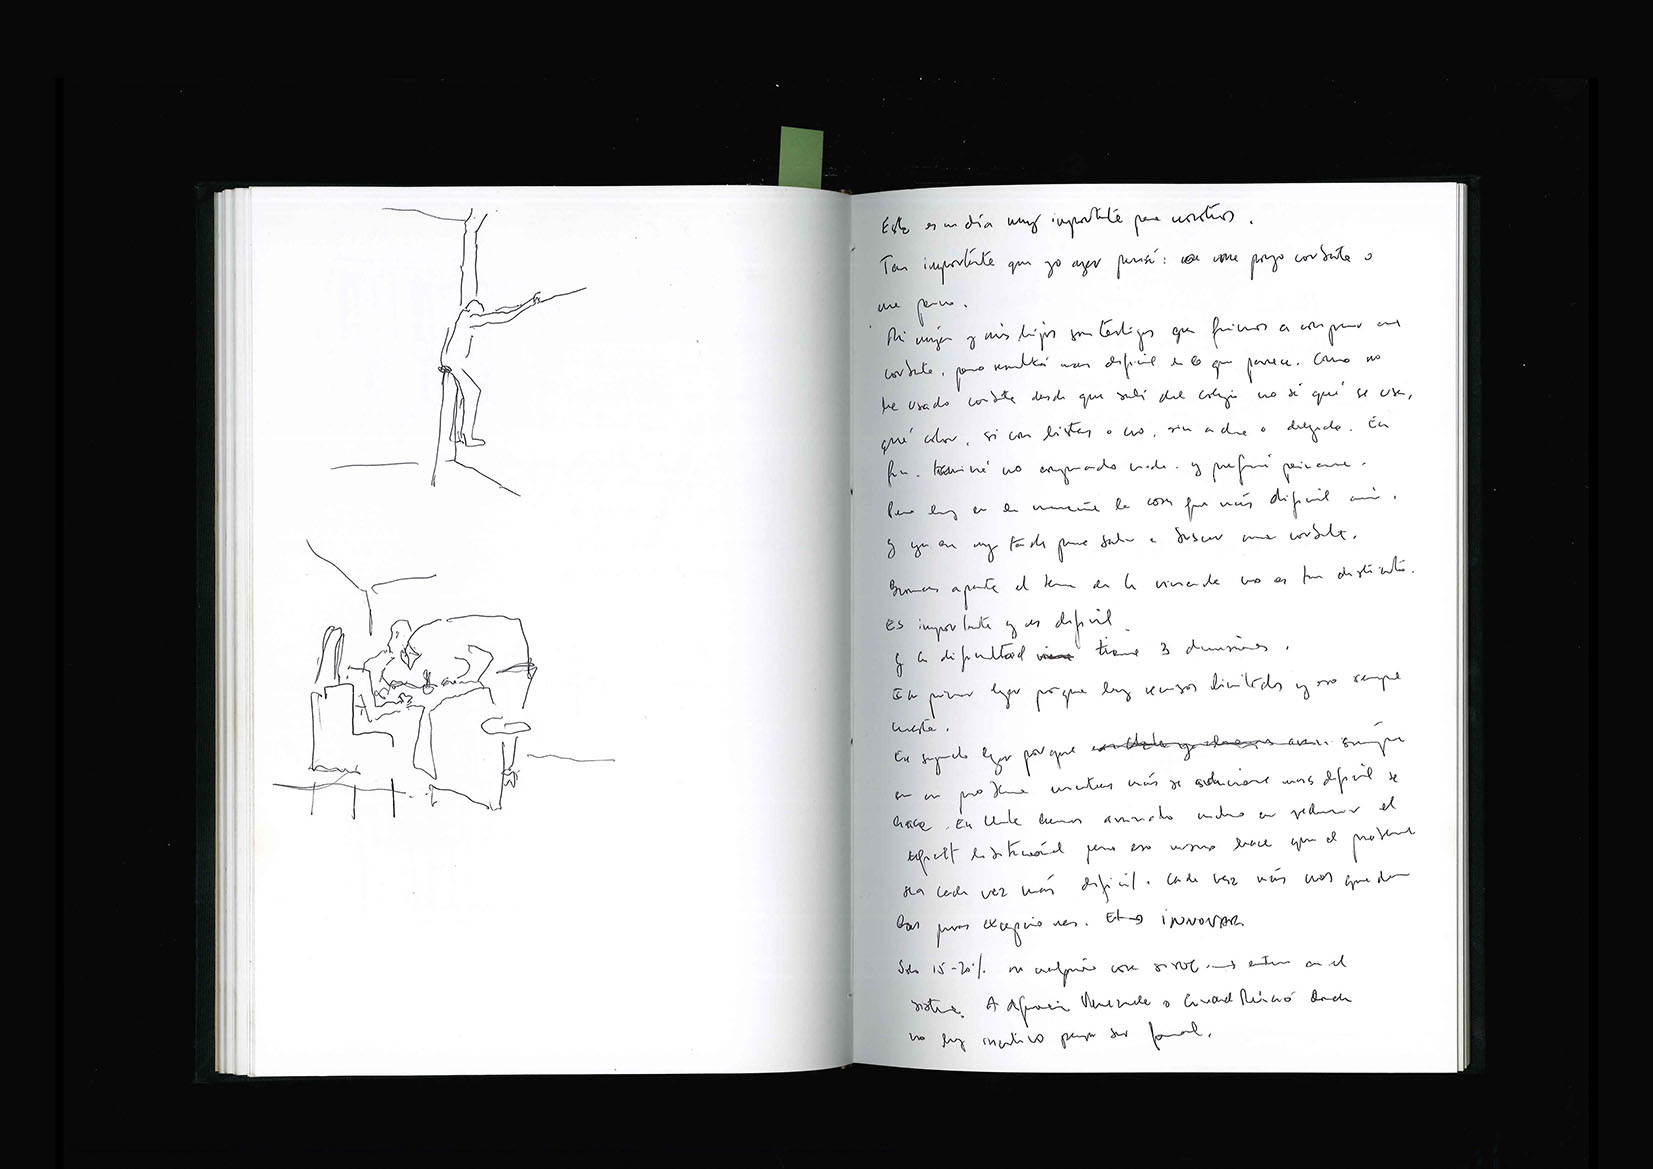 Este es un día muy importante para nosotros.
Tan importante que yo ayer pensé: me pongo corbata o
me peino.
Mi mujer y mis hijos son testigos que fuimos a comprar una
corbata, pero resultó más difícil de lo que parece. Como no
he usado corbata desde que salí del colegio no sé qué se usa,
qué color, si con listas o no, si ancha o delgada. En
fin. terminé no comprando nada. y preferí peinarme.
Pero hoy en la mañana la cosa fue más difícil aún.
y ya era muy tarde para salir a buscar una corbata.
Bromas aparte el tema de la vivienda no es tan distinto.
Es importante y es difícil
y la dificultad tiene 3 dimensiones.
En primer lugar porque hay recursos limitados y eso siempre
cuesta.
En segundo lugar porque siempre
en un problema mientras más se soluciona más difícil se
hace. En Chile hemos avanzado mucho en reducir el
déficit habitacional pero eso mismo hace que el problema
sea cada vez más difícil. Cada vez más nos quedan
las puras excepciones. INNOVAR
Solo 15-20% en cualquier cosa entran en el
sistema. A diferencia Venezuela o Ciudad México donde
no hay incentivo para ser formal.